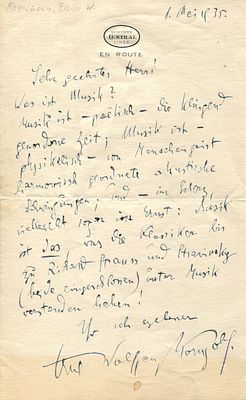 KORNGOLD, Erich W.
NEW YORK
CENTRAL
LINES
EN ROUTE
1. Mei 1935.
Sehr geehrter Herr!
Was ist Musik?
Musik ist – poetisch – die klingend
gewordene Zeit; Musik ist –
physikalisch – von Menschengeist
harmonisch geordnete akustische
Schwingungen; und – im Scherz
vielleicht sogar im Ernst: Musik
ist das, was die Klassiker bis
zu Richard Strauss und Strawinsky
(beide eingeschlossen) unter Musik
verstanden haben!
Ihr sehr ergebener
Erich Wolfgang Korngold.